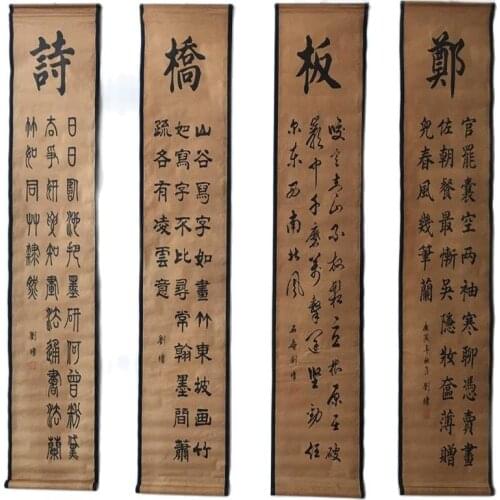 鄭
官罷囊空两袖寒聊憑賣畫
佐朝餐最慚吳隱妝奩薄贈
兒春風幾筆蘭
劉墉
板
咬定青山不放松立根原在破
岩中千磨萬擊還坚劲任
尔东西南北风
石庵劉墉
橋
山谷寫字如畫竹東坡画竹
如寫字不比尋常翰墨間蕭
疏各有凌雲意
劉墉
詩
日日臨池把墨研何曾粉黛
去爭妍要知畫法通書法蘭
竹如同艸隸然
劉墉